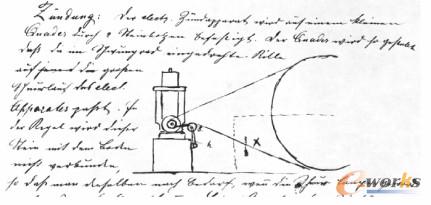 Zündung: Der electr. Zündapparat wird auf einem kleinen
Quader durch 2 Steinbolzen befestigt. Der Quader wird so gestellt
daß die im Schwungrad eingedrehte Rille
auf jene der großen
Schnurlauf des elect.
Apparates paßt. In
der Regel wird dieser
Stein mit dem Boden
nicht verbunden,
so daß man denselben nach Bedarf, wenn die Schnur
x
e-works